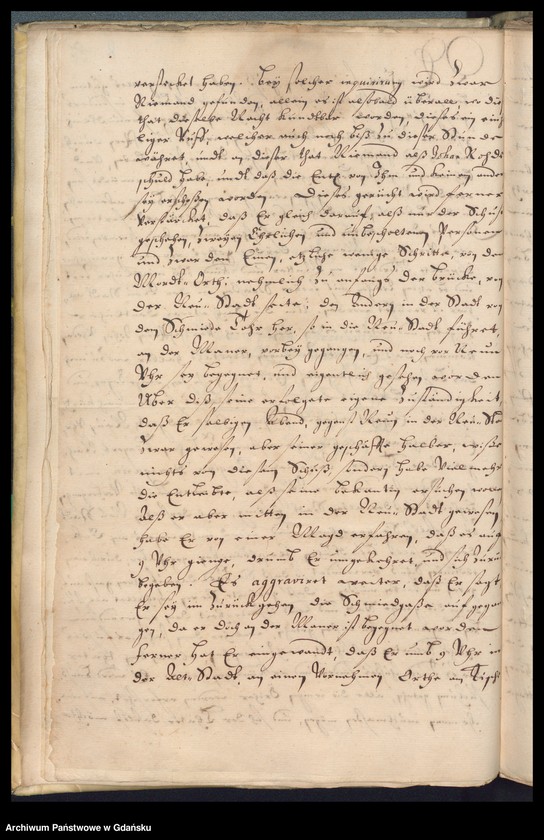 verstecket haben. Bey solcher inquirirung wird Zwar
Niemand gefunden, allein es ist alsobald überall, wo die
that dieselbe Nacht kundbahr worden, dieses ein ein-
liger Ruff, welcher auch noch biß zu dieser Stunde
wehret, undt an dieser that Niemand alß
schuld habe, undt daß die von Ihm und keinem ander
sey erschoßen worden. Dieses gerücht wird ferner
verstärcket, daß Er gleich darauf, alß nur der Schuß
geschehen, zweyen Ehrlichen und unbescholtenen Personen
und zwar dem Einen, etzliche wenige Schritte, von dem
Mordt-Orth, nehmlich zu anfangs der brücke, von
der Neu-Stadt seite; den Andern in der Stadt von
dem Schmiede Thor her, so in die Neu-Stadt führet,
an der Mauer, vorbey gegangen, und noch vor Neun
Uhr sey begegnet, und eigentlich gesehen worden
Uber diß seine erfolgete eigene zuständigkeit,
daß Er selbigen Abend, gegen Neun in der Neu-Sta
zwar gewesen, aber seiner geschäffte halber, wiße
nichts von diesem Schuß, sondern habe Vielmehr
die Entleibte, alß seine bekantin ersuchen wolle
Alß er aber mitten in der Neu-Stadt gewesen
habe Er von einer Magd erfahren, daß es auf
9 Uhr gienge, drumb Er umgekehret, und sich zurü
begeben. Es aggraviret weiter, daß Er sagt
Er sey im zurückgehen die Schmiedgaße auf gegan
gen, da er doch an der Mauer ist begegnet worden
ferner hat Er eingewandt, daß Er umb 9 Uhr in
der Alt-Stadt, an einem Vornehmen Orthe am Tisch
Archiwum Państwowe w Gdańsku